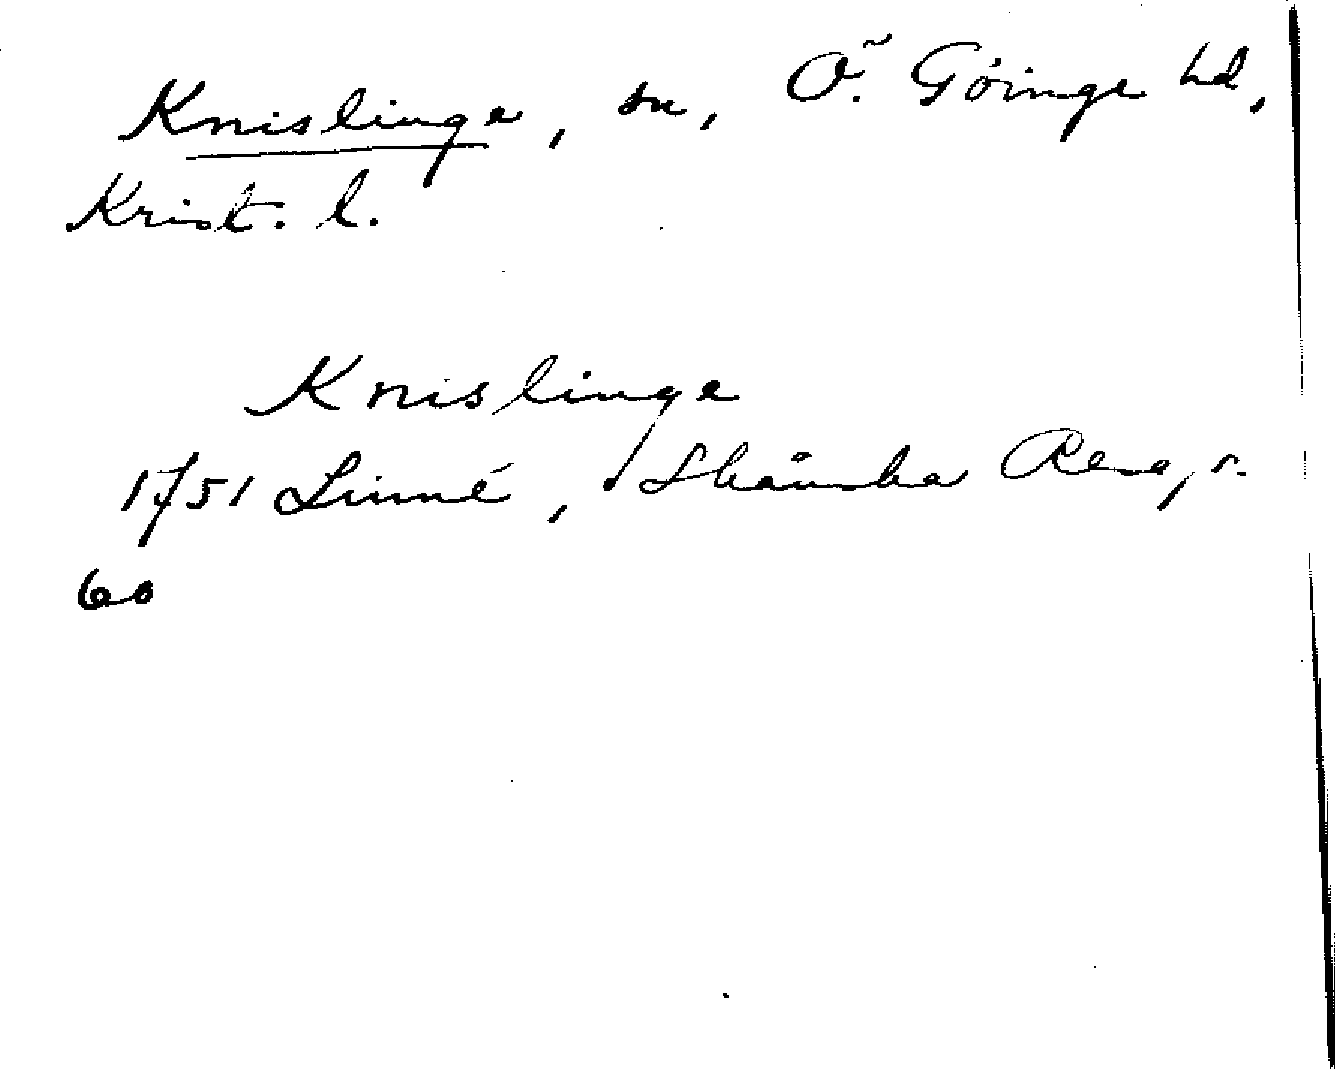 Knislinge, sn, Ö. Göinge hd,
Krist. l.
Knislinge
1751 Linné, Skånska Resa, s.
60